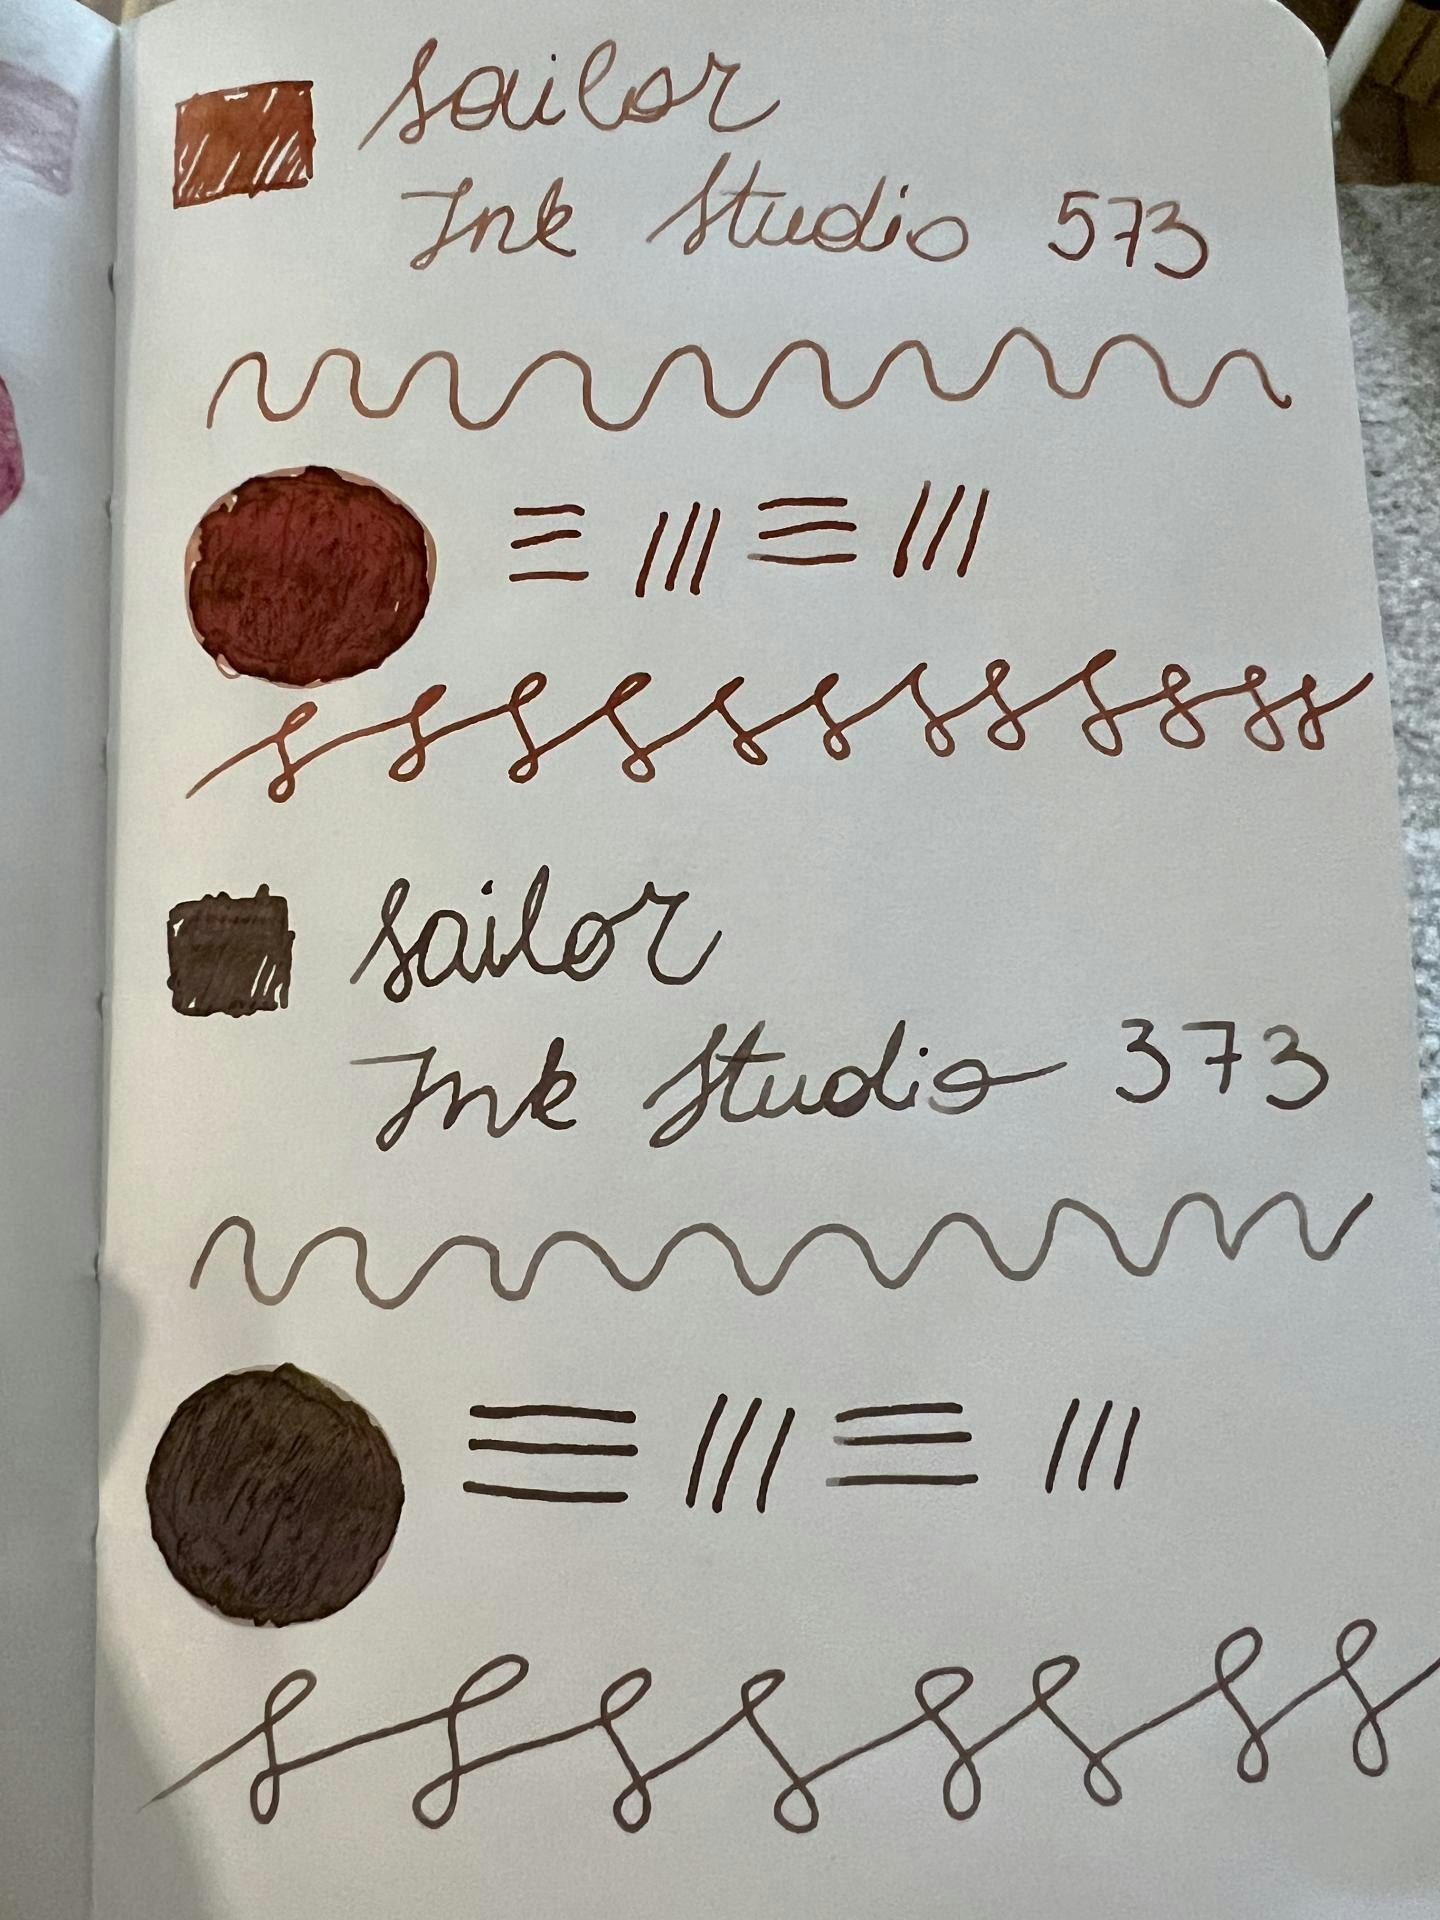 Sailor
Ink Studio 573
Sailor
Ink Studio 373